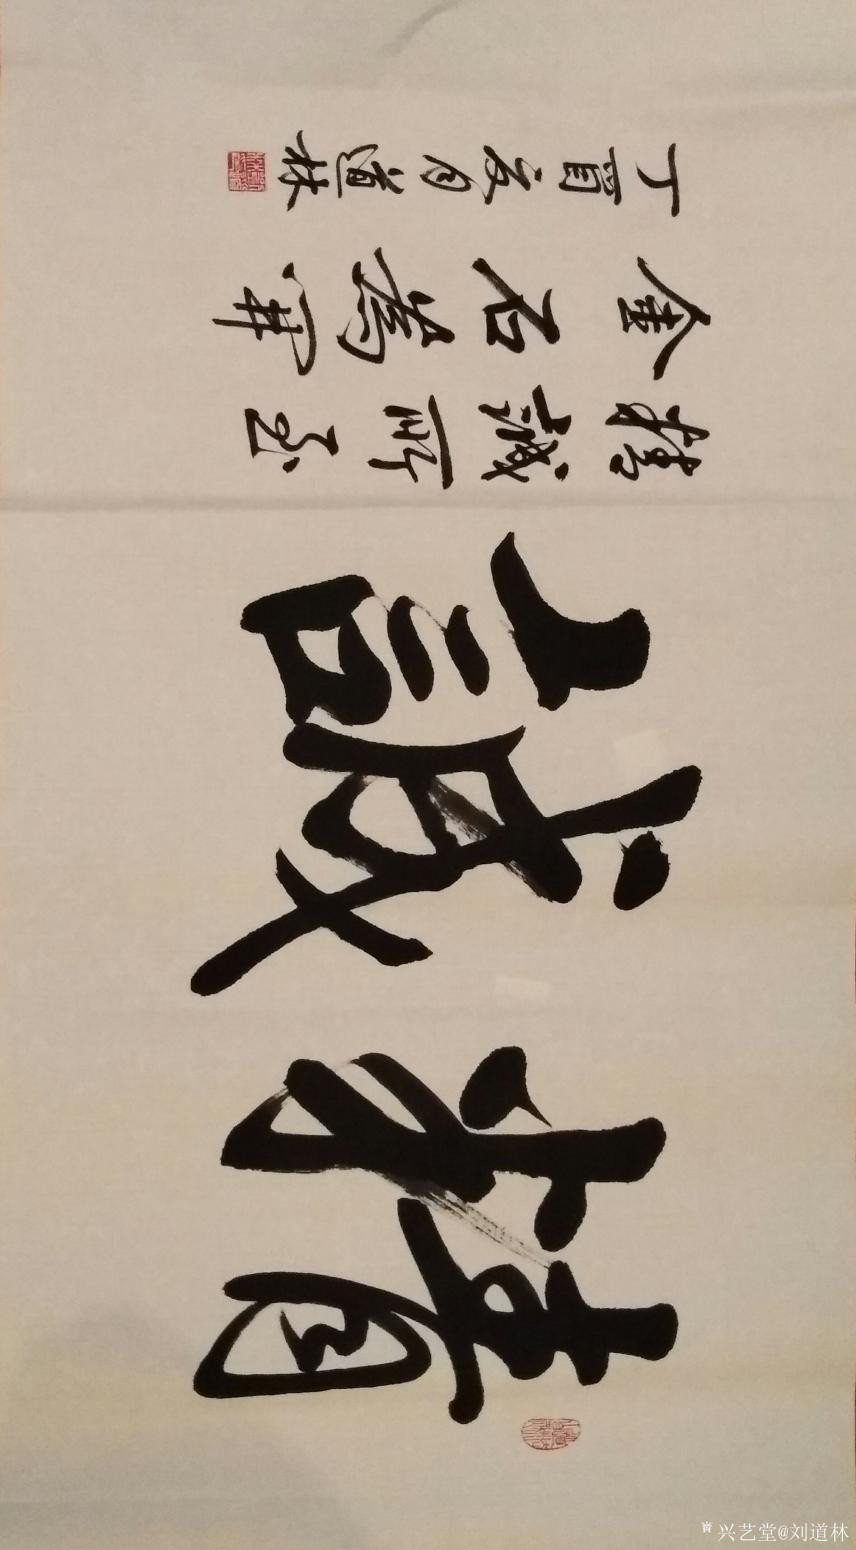 精誠
精誠所至
金石為開
丁酉夏月道林
兴艺堂@刘道林